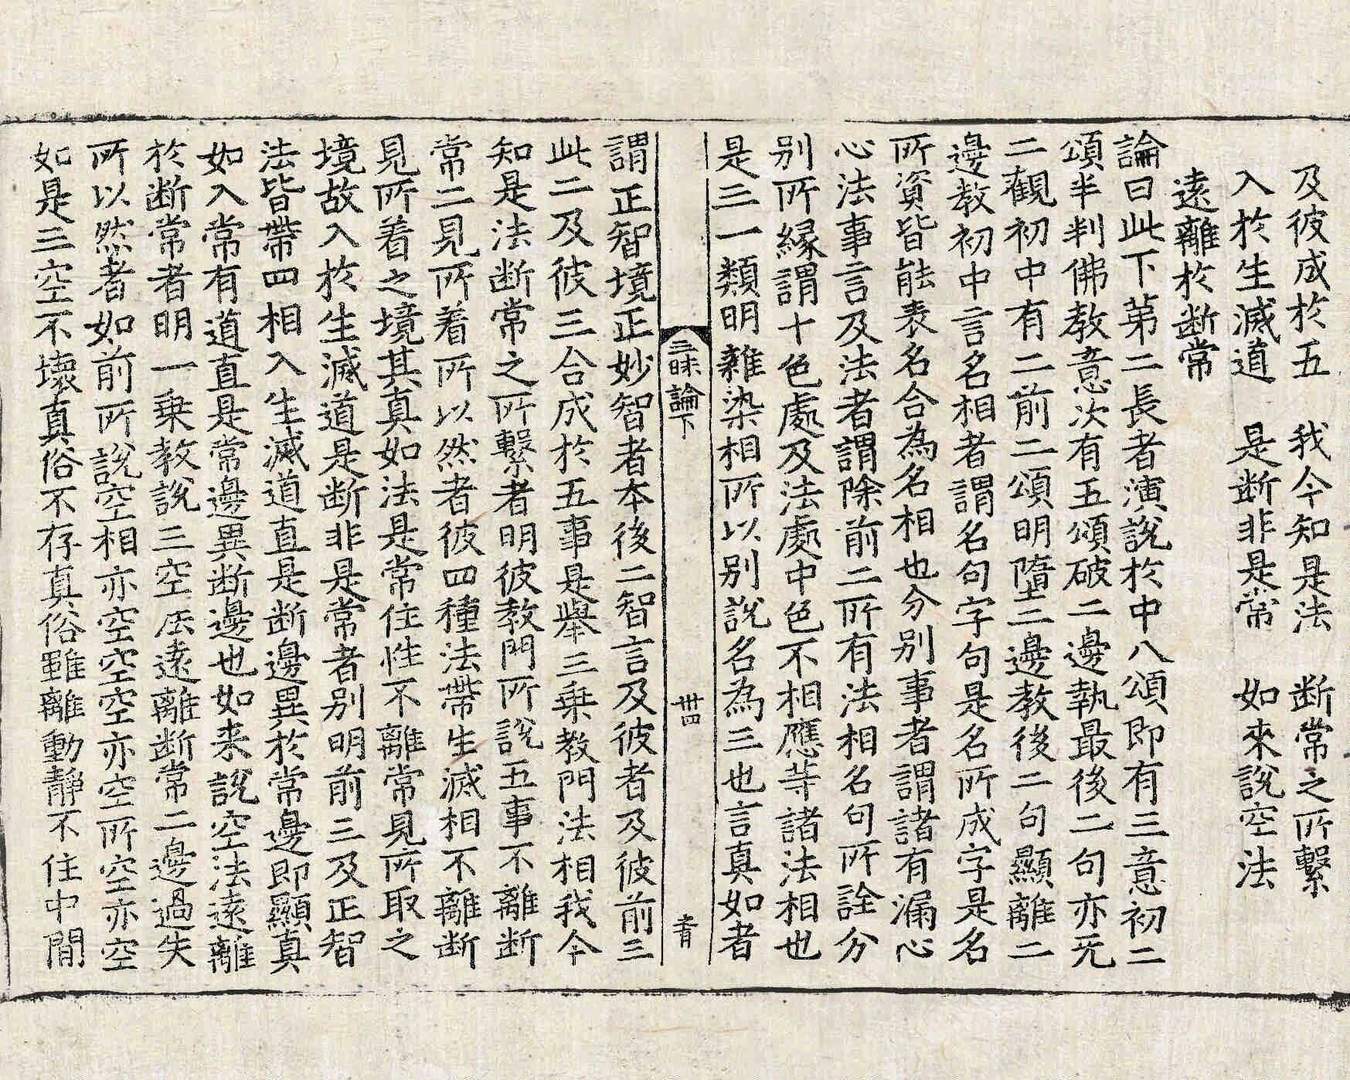 及彼成於五　我今知是法　断常之所繫
入於生滅道　是断非是常　如來說空法
遠離於断常
論曰此下第二長者演說於中八頌即有三意初二
頌半判佛教意次有五頌破二邊執最後二句亦无
二觀初中有二前二頌明墮二邊教後二句顯離二
邊教初中言名相者謂名句字句是名所成字是名
所資皆能表名合為名相也分别事者謂諸有漏心
心法事言及法者謂除前二所有法相名句所詮分
别所緣謂十色處及法處中色不相應等諸法相也
是三一類明雜染相所以别說名為三也言真如者
三昧論下　卅四　孝
謂正智境正妙智者本後二智言及彼者及彼前三
此二及彼三合成於五事是舉三乗教門法相我今
知是法断常之所繫者明彼教門所說五事不離断
常二見所着所以然者彼四種法帶生滅相不離断
見所着之境其真如法是常住性不離常見所取之
境故入於生滅道是断非是常者别明前三及正智
法皆帶四相入生滅道直是断邊異於常邊即顯真
如入常有道直是常邊異断邊也如来說空法遠離
於断常者明一乗教說三空法遠離断常二邊過失
所以然者如前所說空相亦空空空亦空所空亦空
如是三空不壞真俗不存真俗雖離動靜不住中間